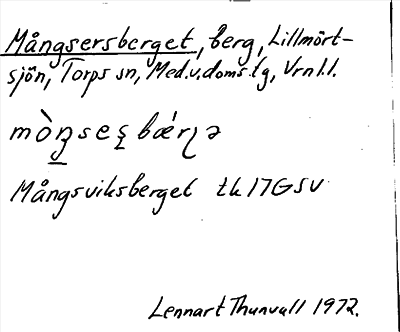 Mångsersberget, berg, Lillmört-
sjön, Torps sn, Med.v.doms.lg, Vrnl.l.
Mångsviksberget tk 17GSV
Lennart Thunvall 1972.